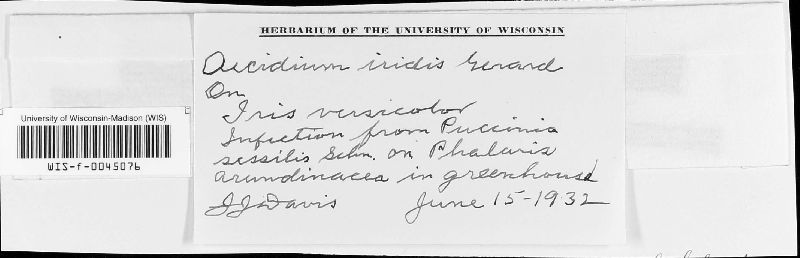 HERBARIUM OF THE UNIVERSITY OF WISCONSIN
Aecidium iridis Gerard
On
Iris versicolor
Infection from Puccinia
sessilis Schn. on Phalaris
arundinacea in greenhouse
J J Davis June 15-1932
University of Wisconsin-Madison (WIS)
WIS-f-0045076